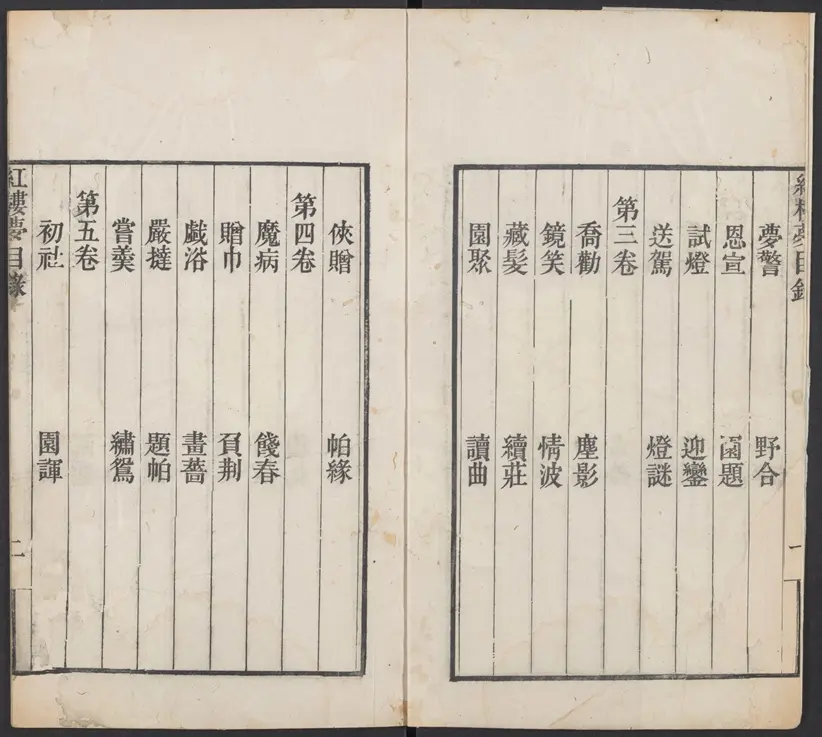 紅樓夢目錄
一
夢警 野合
恩宣 園題
試燈 迎鑾
送駕 燈謎
第三卷
喬勸 塵影
鏡笑 情波
藏髮 續莊
園聚 讀曲
俠贈 帕緣
第四卷
魔病 餞春
贈巾 負荆
戲浴 畫薔
嚴撻 題帕
嘗羹 繡鴛
第五卷
初社 園諢
紅樓夢目錄
二